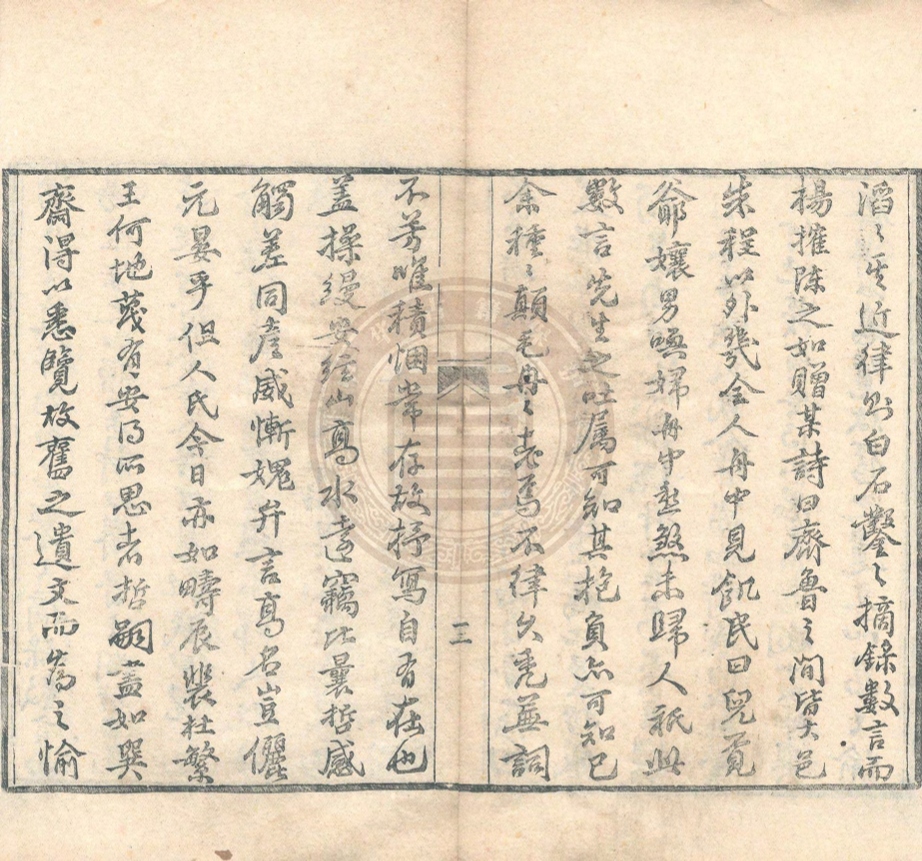 滔〻其近律則白石鑿〻摘錄數言而
揚搉陳之如贈某詩曰齊魯之間皆大邑
朱程以外幾全人舟中見飢民曰兒覓
爺孃男喚婦舟中愁煞未歸人祇此
數言先生之吐屬可知其抱負亦可知已
余種〻顛毛冉〻老焉不律久禿蕪詞
不芳唯積悃常存故抒寫自有在也
蓋操縵安絃山高水遠竊比曩哲感
觸差同產感慚媿弁言高名豈儷
元晏乎但人民今日亦如疇辰裴杜繁
王何地蔑有安得所思者哲嗣盖如巽
齋得以悉覽故舊之遺文而為之愉
二